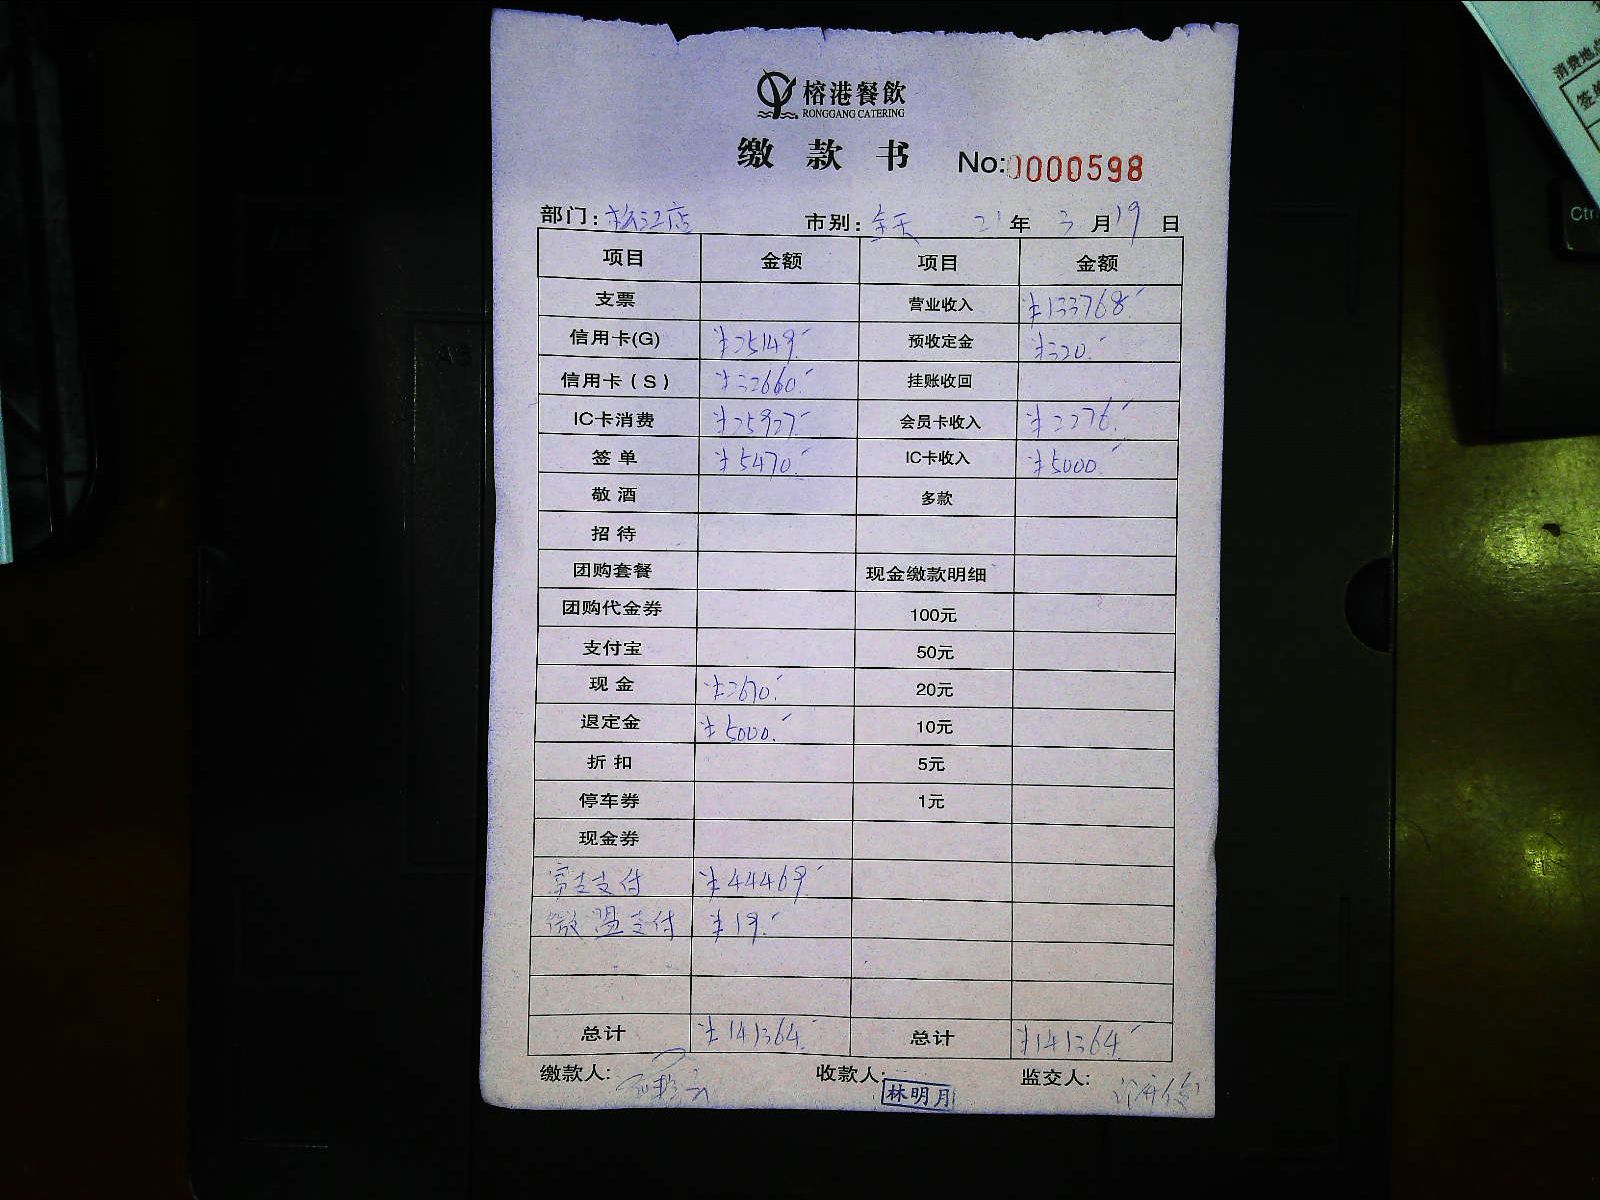 榕港餐飲
RONGGANG CATERING
缴款书 No:0000598
部门:松江店 市别:全天 21年3月19日
项目 金额 项目 金额
支票 营业收入 ¥133768.-
信用卡(G) ¥25149.- 预收定金 ¥320.-
信用卡(S) ¥32660.- 挂账收回
IC卡消费 ¥25927.- 会员卡收入 ¥2276.-
签单 ¥5470.- IC卡收入 ¥5000.-
敬酒 多款
招待
团购套餐 现金缴款明细
团购代金券 100元
支付宝 50元
现金 ¥2670.- 20元
退定金 ¥5000.- 10元
折扣 5元
停车券 1元
现金券
富友支付 ¥44469.-
微盟支付 ¥19.-
总计 ¥141364.- 总计 ¥141364.-
缴款人: 收款人: 林明月 监交人:
消费地点
签单
Ctr